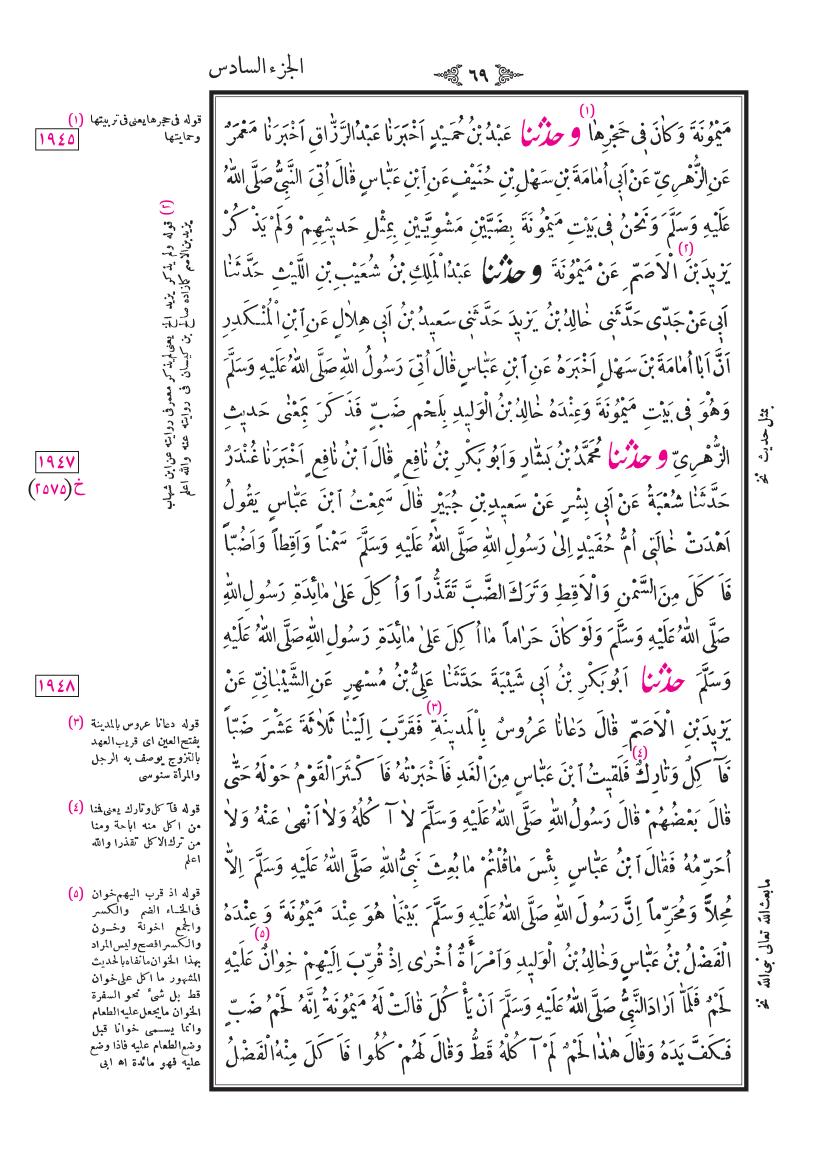 الجزء السادس
٦٩
مَيْمُونَةَ وَكَانَ فِى حَجْرِهَا (١) وحَدَّثَنَا عَبْدُ بْنُ حُمَيْدٍ اَخْبَرَنَا عَبْدُ الرَّزَّاقِ اَخْبَرَنَا مَعْمَرٌ
عَنِ الزُّهْرِىِّ عَنْ اَبِى اُمَامَةَ بْنِ سَهْلِ بْنِ حُنَيْفٍ عَنِ ابْنِ عَبَّاسٍ قَالَ اُتِىَ النَّبِىُّ صَلَّى اللّٰهُ
عَلَيْهِ وَسَلَّمَ وَنَحْنُ فِى بَيْتِ مَيْمُونَةَ بِضَبَّيْنِ مَشْوِيَّيْنِ بِمِثْلِ حَدِيثِهِمْ وَلَمْ يَذْكُرْ
يَزِيدَ بْنَ (٢) الْاَصَمِّ عَنْ مَيْمُونَةَ وحَدَّثَنَا عَبْدُ الْمَلِكِ بْنُ شُعَيْبِ بْنِ اللَّيْثِ حَدَّثَنَا
اَبِى عَنْ جَدِّى حَدَّثَنِى خَالِدُ بْنُ يَزِيدَ حَدَّثَنِى سَعِيدُ بْنُ اَبِى هِلَالٍ عَنِ ابْنِ الْمُنْكَدِرِ
اَنَّ اَبَا اُمَامَةَ بْنَ سَهْلٍ اَخْبَرَهُ عَنِ ابْنِ عَبَّاسٍ قَالَ اُتِىَ رَسُولُ اللّٰهِ صَلَّى اللّٰهُ عَلَيْهِ وَسَلَّمَ
وَهُوَ فِى بَيْتِ مَيْمُونَةَ وَعِنْدَهُ خَالِدُ بْنُ الْوَلِيدِ بِلَحْمِ ضَبٍّ فَذَكَرَ بِمَعْنَى حَدِيثِ
الزُّهْرِىِّ وحَدَّثَنَا مُحَمَّدُ بْنُ بَشَّارٍ وَاَبُو بَكْرِ بْنُ نَافِعٍ قَالَ ابْنُ نَافِعٍ اَخْبَرَنَا غُنْدَرٌ
حَدَّثَنَا شُعْبَةُ عَنْ اَبِى بِشْرٍ عَنْ سَعِيدِ بْنِ جُبَيْرٍ قَالَ سَمِعْتُ ابْنَ عَبَّاسٍ يَقُولُ
اَهْدَتْ خَالَتِى اُمُّ حُفَيْدٍ اِلَى رَسُولِ اللّٰهِ صَلَّى اللّٰهُ عَلَيْهِ وَسَلَّمَ سَمْنًا وَاَقِطًا وَاَضُبًّا
فَاَكَلَ مِنَ السَّمْنِ وَالْاَقِطِ وَتَرَكَ الضَّبَّ تَقَذُّرًا وَاُكِلَ عَلَى مَائِدَةِ رَسُولِ اللّٰهِ
صَلَّى اللّٰهُ عَلَيْهِ وَسَلَّمَ وَلَوْ كَانَ حَرَامًا مَا اُكِلَ عَلَى مَائِدَةِ رَسُولِ اللّٰهِ صَلَّى اللّٰهُ عَلَيْهِ
وَسَلَّمَ حَدَّثَنَا اَبُو بَكْرِ بْنُ اَبِى شَيْبَةَ حَدَّثَنَا عَلِىُّ بْنُ مُسْهِرٍ عَنِ الشَّيْبَانِىِّ عَنْ
يَزِيدَ بْنِ الْاَصَمِّ قَالَ دَعَانَا عَرُوسٌ بِالْمَدِينَةِ (٣) فَقَرَّبَ اِلَيْنَا ثَلَاثَةَ عَشَرَ ضَبًّا
فَآكِلٌ وَتَارِكٌ (٤) فَلَقِيتُ ابْنَ عَبَّاسٍ مِنَ الْغَدِ فَاَخْبَرْتُهُ فَاَكْثَرَ الْقَوْمُ حَوْلَهُ حَتَّى
قَالَ بَعْضُهُمْ قَالَ رَسُولُ اللّٰهِ صَلَّى اللّٰهُ عَلَيْهِ وَسَلَّمَ لَا آكُلُهُ وَلَا اَنْهَى عَنْهُ وَلَا
اُحَرِّمُهُ فَقَالَ ابْنُ عَبَّاسٍ بِئْسَ مَا قُلْتُمْ مَا بُعِثَ نَبِىُّ اللّٰهِ صَلَّى اللّٰهُ عَلَيْهِ وَسَلَّمَ اِلَّا
مُحِلًّا وَمُحَرِّمًا اِنَّ رَسُولَ اللّٰهِ صَلَّى اللّٰهُ عَلَيْهِ وَسَلَّمَ بَيْنَمَا هُوَ عِنْدَ مَيْمُونَةَ وَعِنْدَهُ
الْفَضْلُ بْنُ عَبَّاسٍ وَخَالِدُ بْنُ الْوَلِيدِ وَامْرَأَةٌ اُخْرَى اِذْ قُرِّبَ اِلَيْهِمْ خِوَانٌ (٥) عَلَيْهِ
لَحْمٌ فَلَمَّا اَرَادَ النَّبِىُّ صَلَّى اللّٰهُ عَلَيْهِ وَسَلَّمَ اَنْ يَأْكُلَ قَالَتْ لَهُ مَيْمُونَةُ اِنَّهُ لَحْمُ ضَبٍّ
فَكَفَّ يَدَهُ وَقَالَ هٰذَا لَحْمٌ لَمْ آكُلْهُ قَطُّ وَقَالَ لَهُمْ كُلُوا فَاَكَلَ مِنْهُ الْفَضْلُ
(١) قوله فى حجرها يعنى فى تربيتها
وحمايتها
١٩٤٥
(٢) قوله ولم يذكر يزيد الخ يعنى لم يذكر معمر فى روايته عن ابن شهاب
يزيد بن الاصم كازاده صالح بن كيسان فى روايته عنه والله اعلم
١٩٤٧
خ(٢٥٧٥)
١٩٤٨
(٣) قوله دعانا عروس بالمدينة
بفتح العين اى قريب العهد
بالتزوج يوصف به الرجل
والمرأة سنوسى
(٤) قوله فآكل وتارك يعنى فمنا
من اكل منه اباحة ومنا
من ترك الاكل تقذرا والله
اعلم
(٥) قوله اذ قرب اليهم خوان
فى الخاء الضم والكسر
والجمع اخونة وخون
والكسر افصح وليس المراد
بهذا الخوان مانفاه بالحديث
المشهور ما اكل على خوان
قط بل شئ نحو السفرة
الخوان ما يجعل عليه الطعام
وانما يسمى خوانا قبل
وضع الطعام عليه فاذا وضع
عليه فهو مائدة اه ابى
بمثل حديث نخ
ما بعث الله تعالى نبى الله نخ